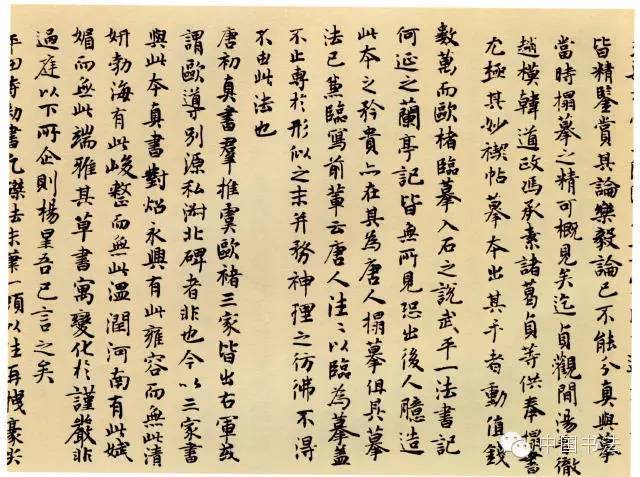 皆精鑒賞其論樂毅論已不能分真與摹
當時搨摹之精可概見矣迄貞觀間湯徹
趙模韓道政馮承素諸葛貞等供奉搨書
尤極其妙禊帖摹本出其手者動值錢
數萬而歐褚臨摹入石之說武平一法書記
何延之蘭亭記皆無所見恐出後人臆造
此本之矜貴亦在其為唐人搨摹但其摹
法已兼臨寫前輩云唐人法〻以臨為摹蓋
不止專於形似之末并務神理之彷彿不得
不由此法也
唐初真書羣推虞歐褚三家皆出右軍或
謂歐導別源私淑北碑者非也今以三家書
與此本真書對炤永興有此雍容而無此清
妍勃海有此峻整而無此溫潤河南有此娬
媚而無此端雅其草書寓變化於謹嚴非
過庭以下所企則楊星吾已言之矣
中国书法